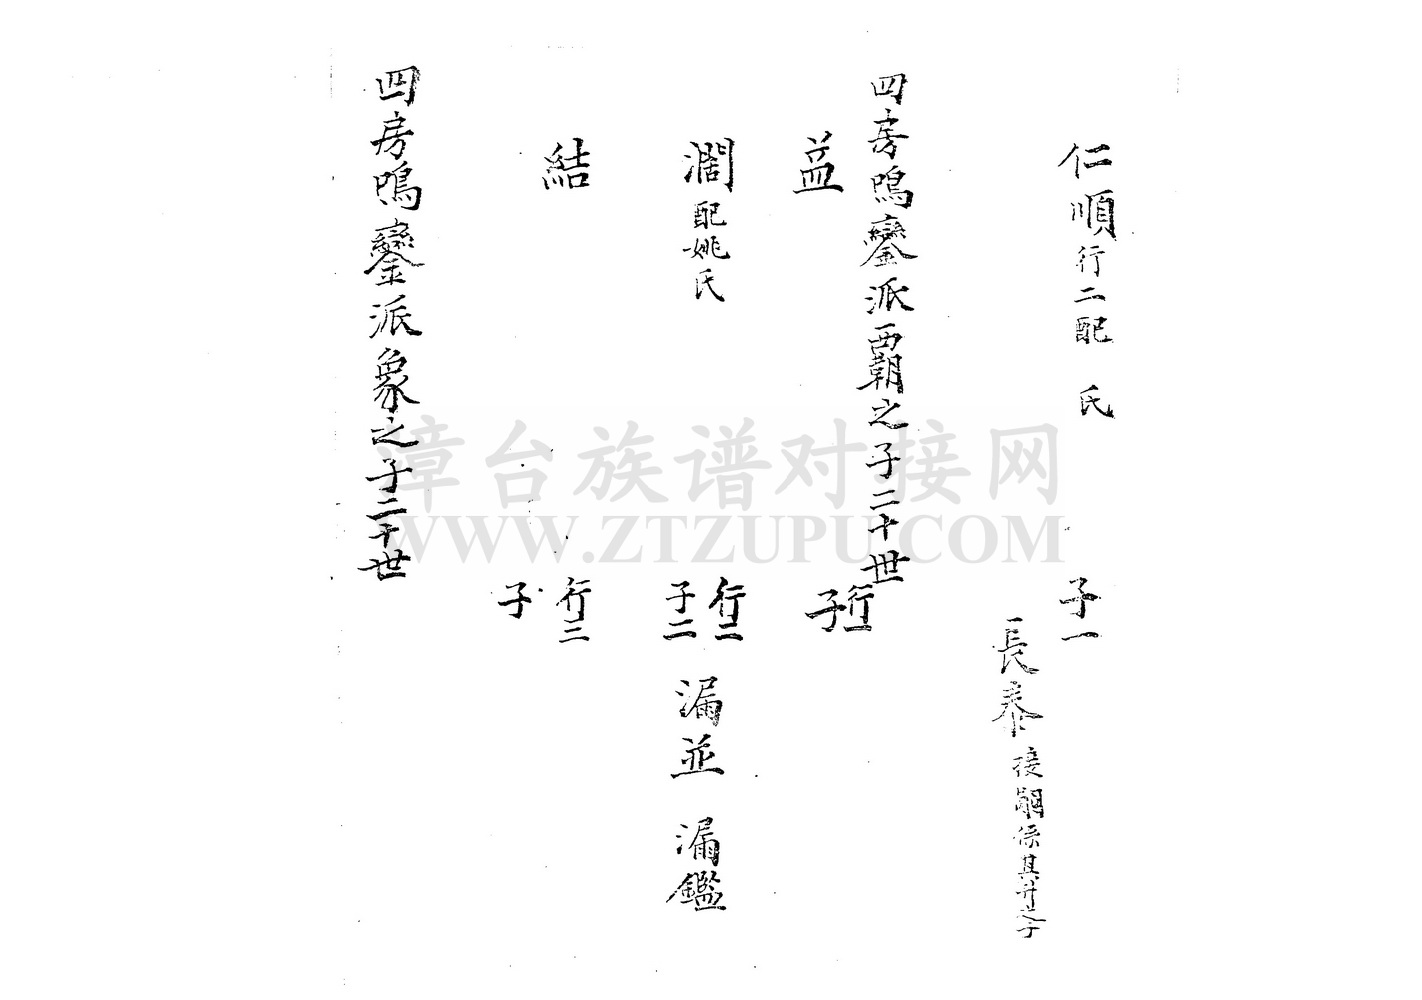 仁順行二配 氏
子一
長泰接嗣係其升之子
四房鳴鑾派覇之子二十世
益
行一
子
濶配姚氏
行二
子二
漏並 漏鑑
結
行三
子
四房鳴鑾派象之子二十世
漳台族谱对接网
WWW.ZTZUPU.COM